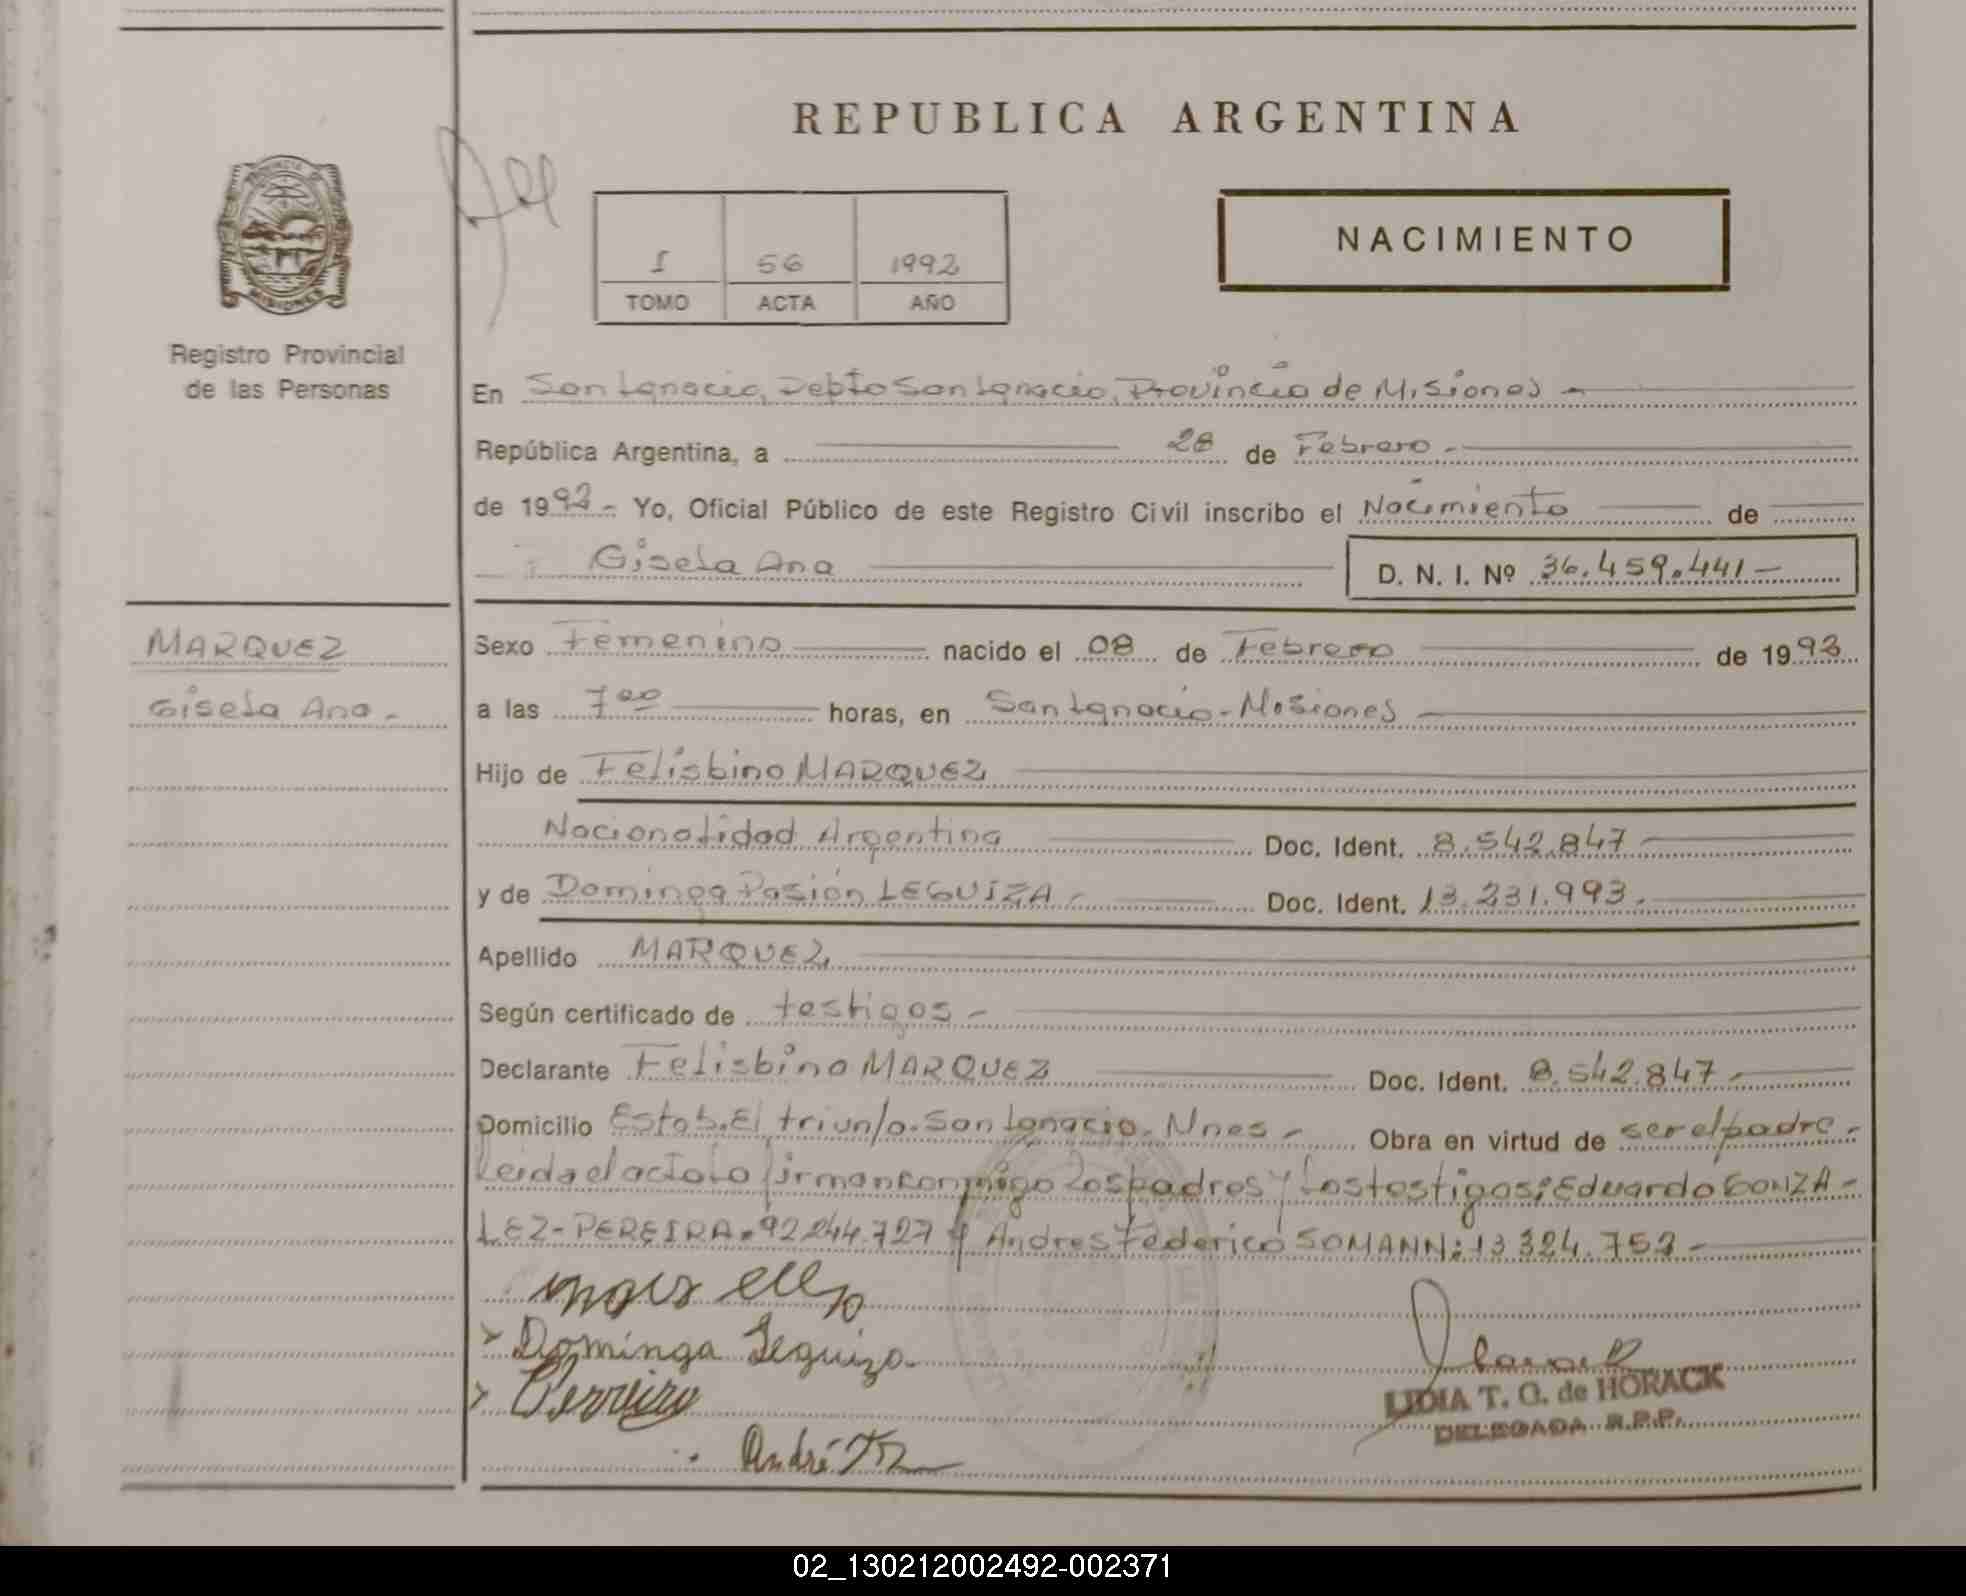 REPUBLICA ARGENTINA
PROVINCIA DE
MISIONES
Registro Provincial
de las Personas
I 56 1992
TOMO ACTA AÑO
NACIMIENTO
En San Ignacio, Depto San Ignacio, Provincia de Misiones -
República Argentina, a 28 de Febrero -
de 1992 - Yo, Oficial Público de este Registro Civil inscribo el Nacimiento de
Gisela Ana D. N. I. Nº 36.459.441 -
MARQUEZ
Gisela Ana -
Sexo Femenino nacido el 08 de Febrero de 1992
a las 7 00 horas, en San Ignacio - Misiones
Hijo de Felisbino MARQUEZ
Nacionalidad Argentina Doc. Ident. 8.542.847
y de Dominga Pasión LEGUIZA - Doc. Ident. 13.231.993.
Apellido MARQUEZ
Según certificado de testigos -
Declarante Felisbino MARQUEZ Doc. Ident. 8.542.847 -
Domicilio Estab. El triunfo. San Ignacio. Mnes - Obra en virtud de ser el padre -
Leida el acta La firman conmigo Los padres y Los testigos: Eduardo GONZA-
LEZ - PEREIRA. 92.244.727 y Andres Federico SOMANN: 13.324.752 -
Dominga Leguiza.
LIDIA T. O. de HORACK
DELEGADA R.P.P.
02_130212002492-002371